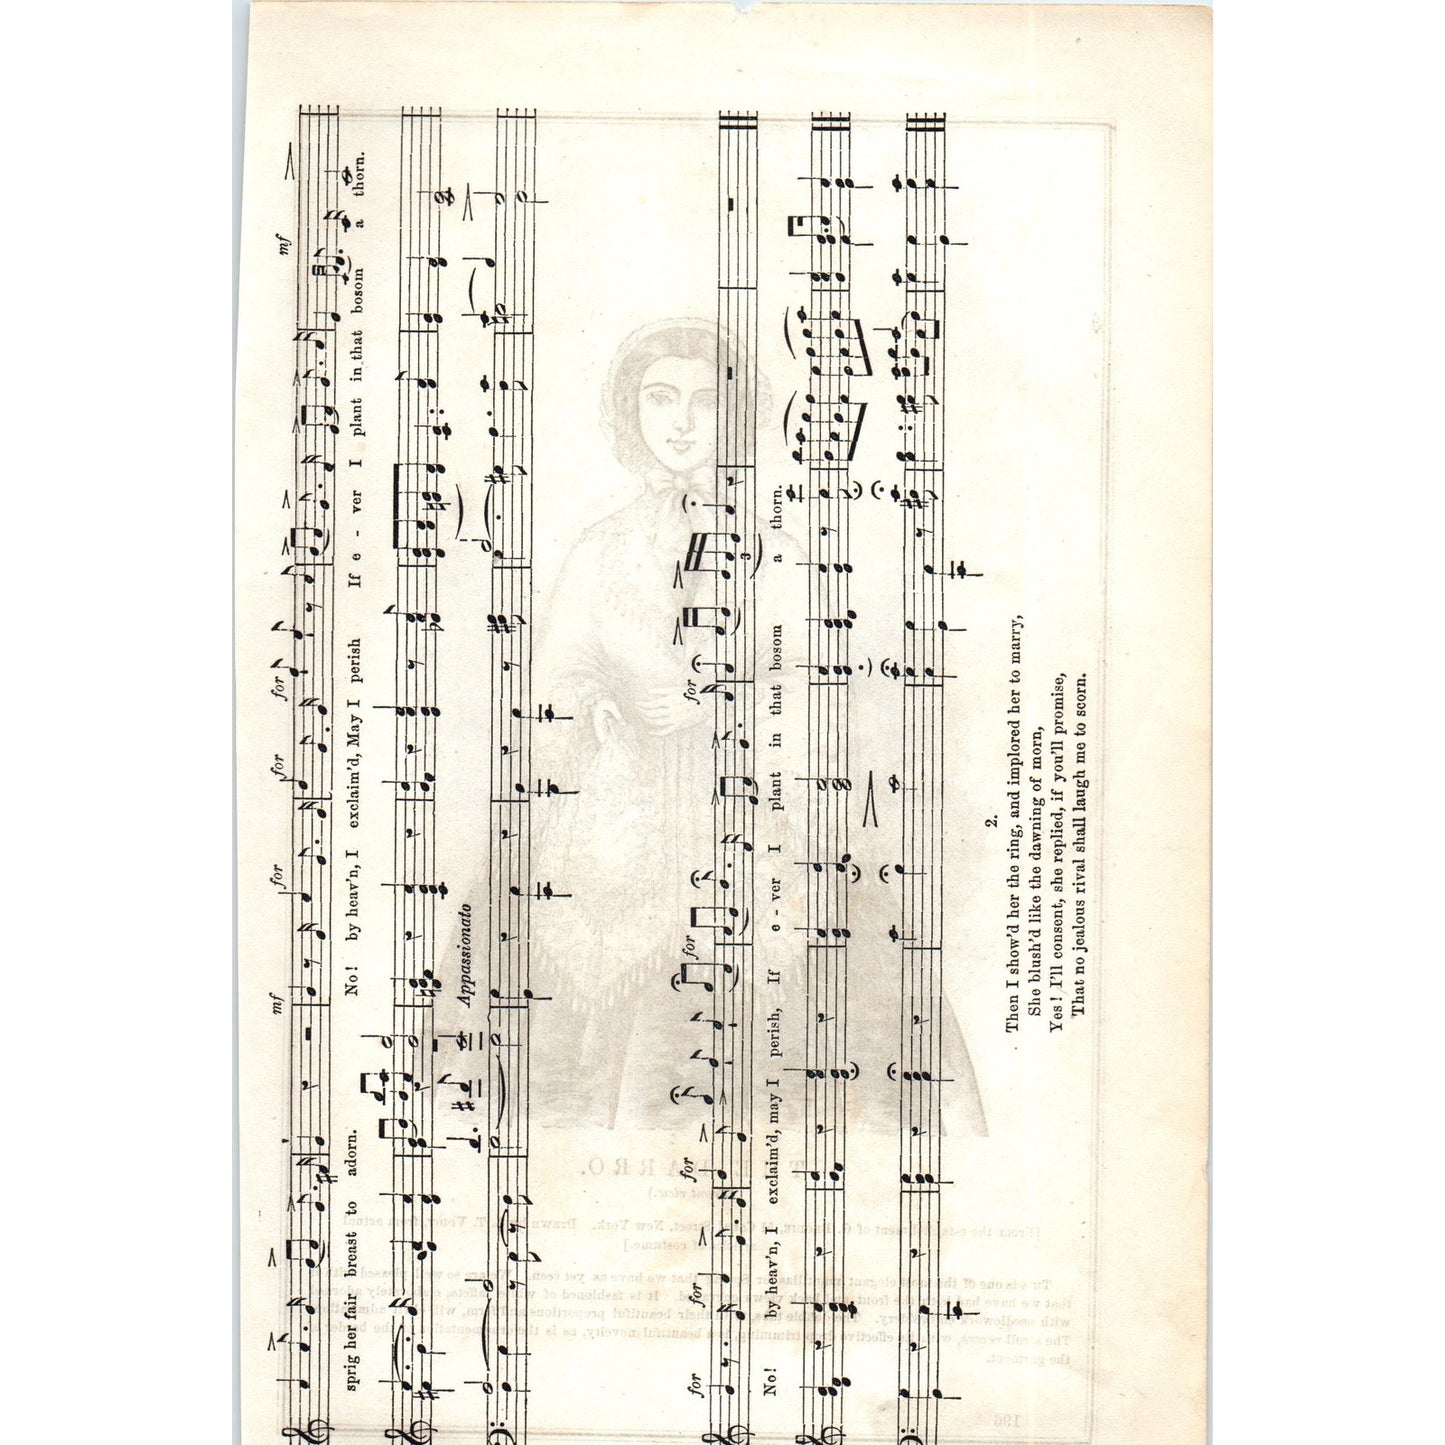 mf for for for mf
sprig her fair breast to adorn. No! by heav'n, I exclaim'd, May I perish If e - ver I plant in that bosom a thorn.
Appassionato
for for for for for
3
No! by heav'n, I exclaim'd, may I perish, If e - ver I plant in that bosom a thorn.
2.
Then I show'd her the ring, and implored her to marry,
She blush'd like the dawning of morn,
Yes! I'll consent, she replied, if you'll promise,
That no jealous rival shall laugh me to scorn.